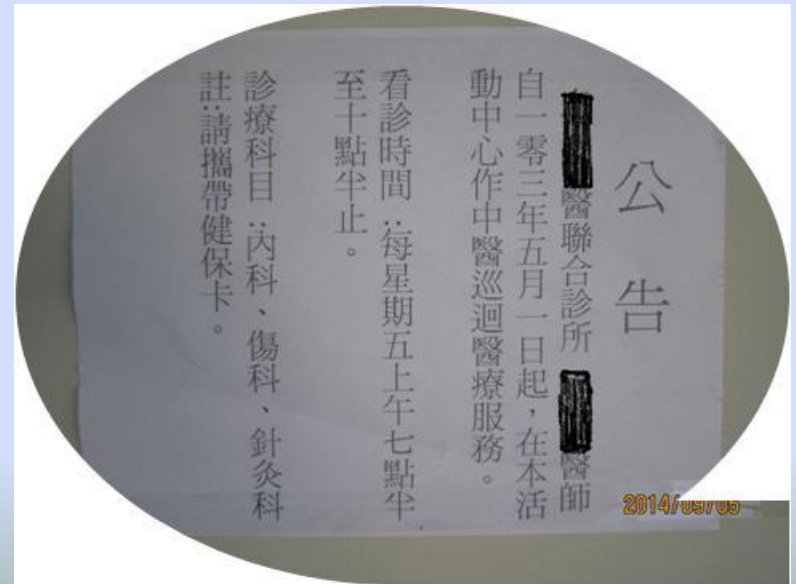 公告
醫聯合診所 醫師
自一零三年五月一日起，在本活
動中心作中醫巡迴醫療服務。
看診時間：每星期五上午七點半
至十點半止。
診療科目：內科、傷科、針灸科
註：請攜帶健保卡。
2014/09/05